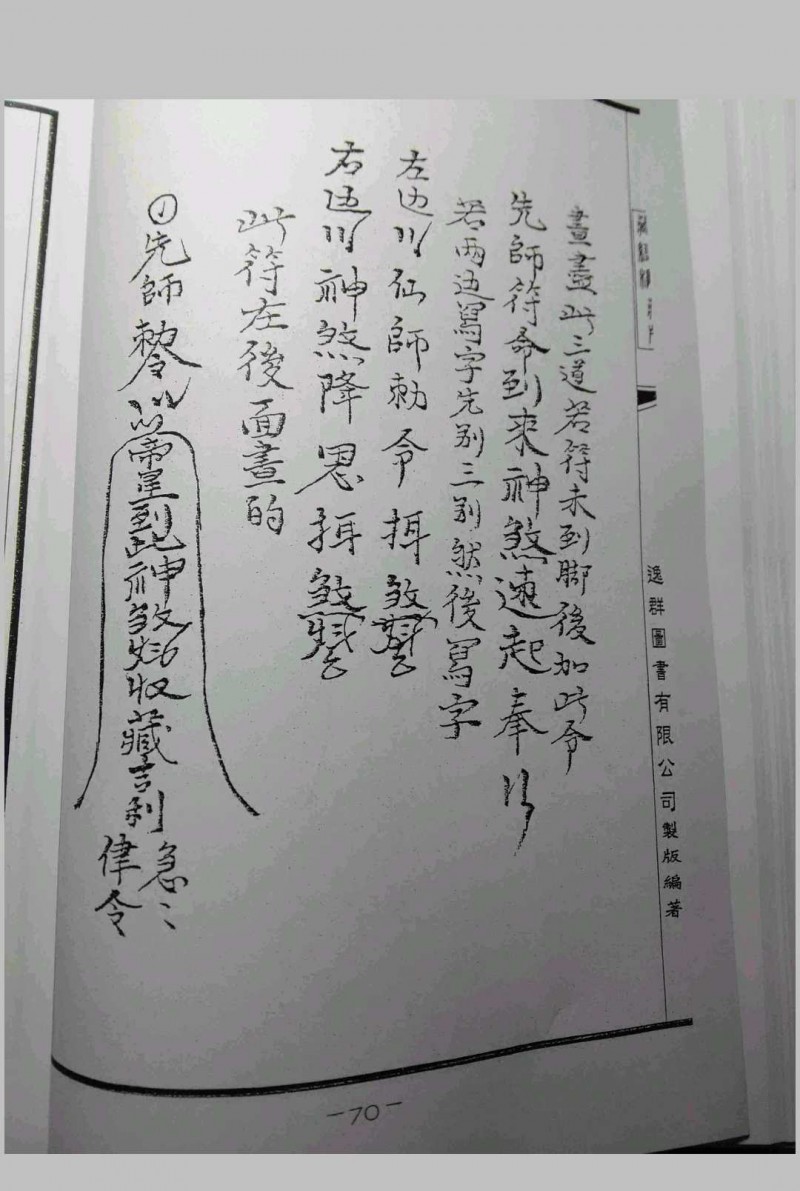 逸群圖書有限公司製版編著
畫盡此三道若符未到脚後加此令
先師符命到來神煞遠起奉行
若兩边寫字先别三别然後寫字
左边 仙師勅令 押煞
右边 神煞降 押煞
此符在後面畫的
① 先師勅令 到此神煞 收藏 吉利
急〻
律令
-70-